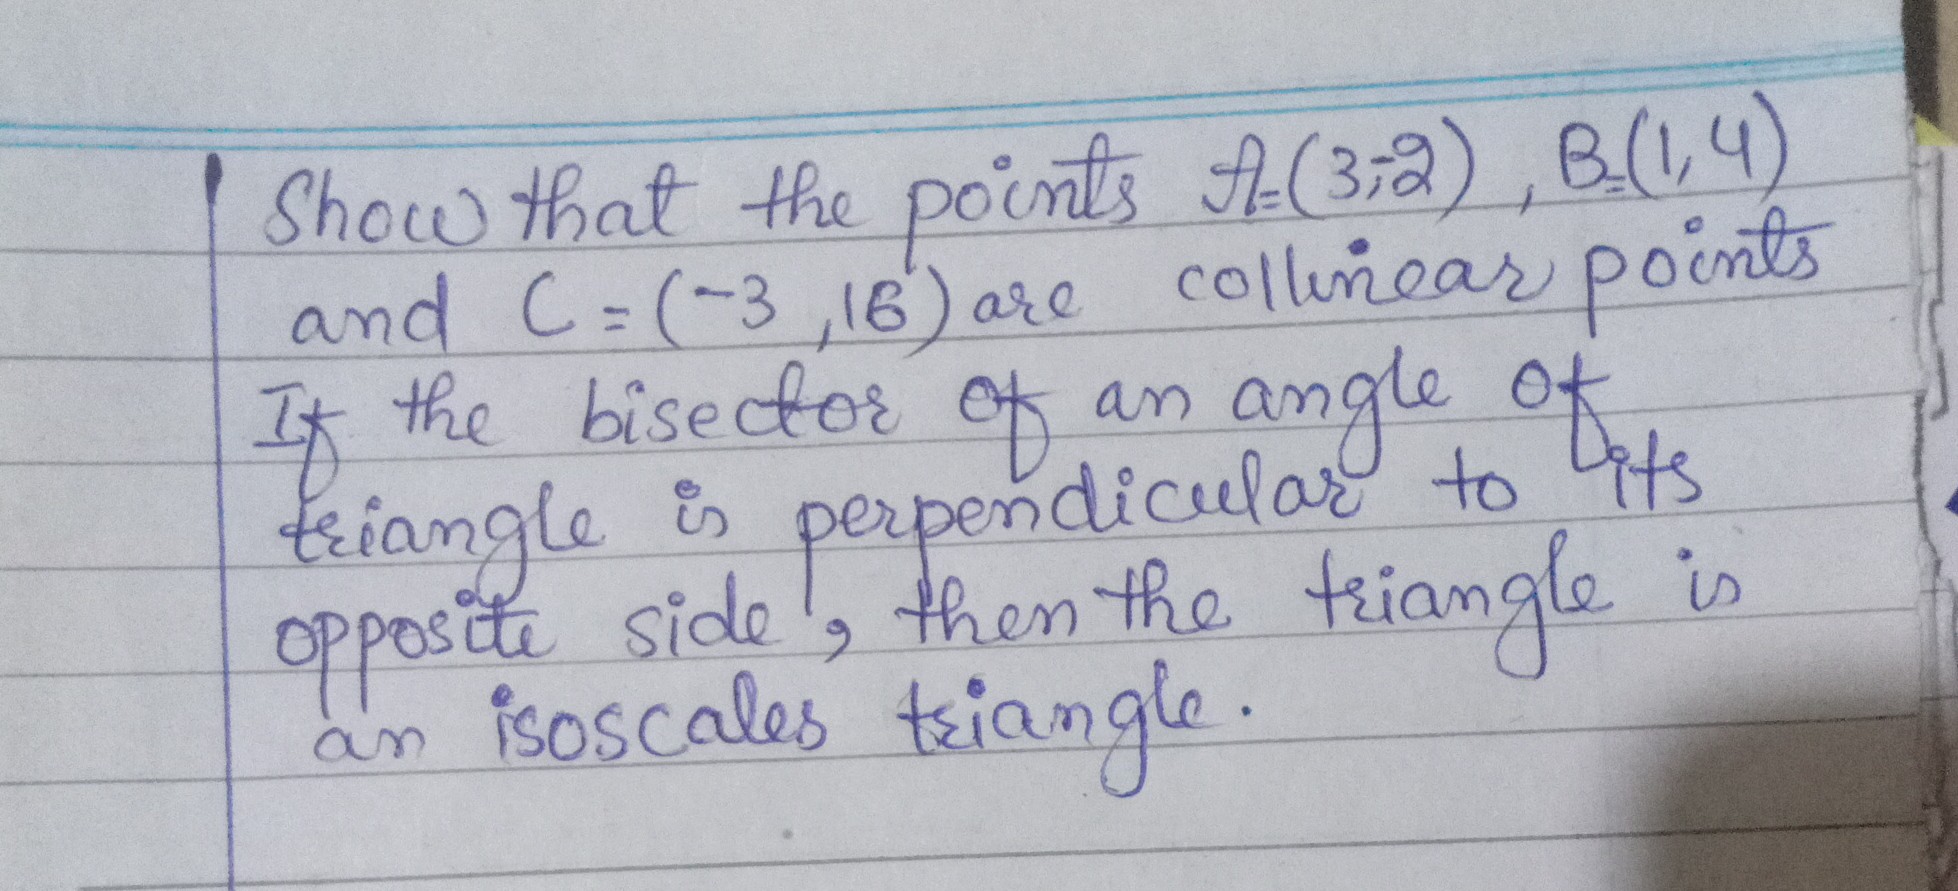 Show that the points A=(3,-2), B=(1,4)
and C=(-3,16) are collinear points
If the bisector of an angle of
triangle is perpendicular to its
opposite side, then the triangle is
an isoscales triangle.